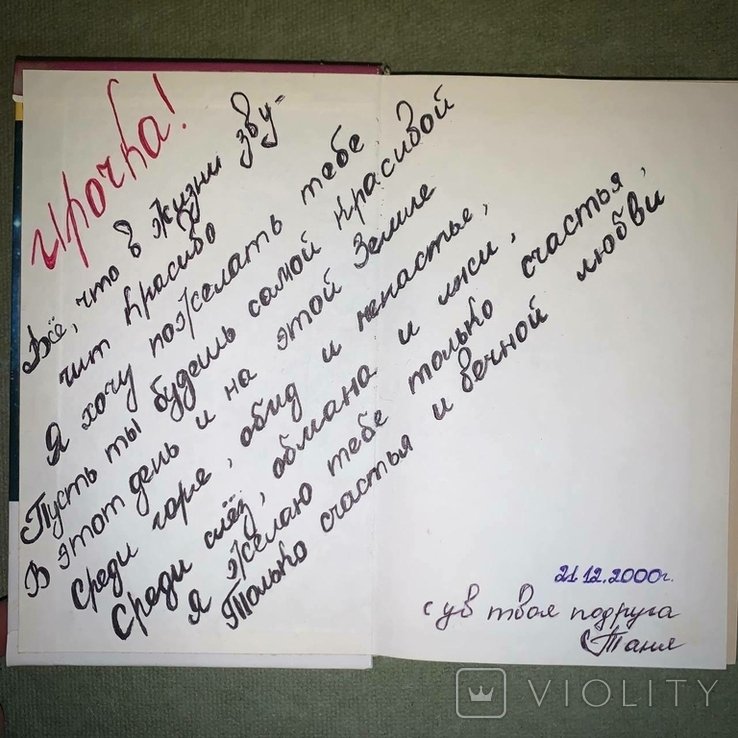 Ирочка!
Всё, что в жизни зву-
чит красиво
Я хочу пожелать тебе
Пусть ты будешь самой красивой
В этот день и на этой Земле
Среди горя, обид и ненастье,
Среди слёз, обмана и лжи,
Я желаю тебе только счастья,
Только счастья и вечной любви
21.12.2000г.
с ув твоя подруга
Таня
VIOLITY